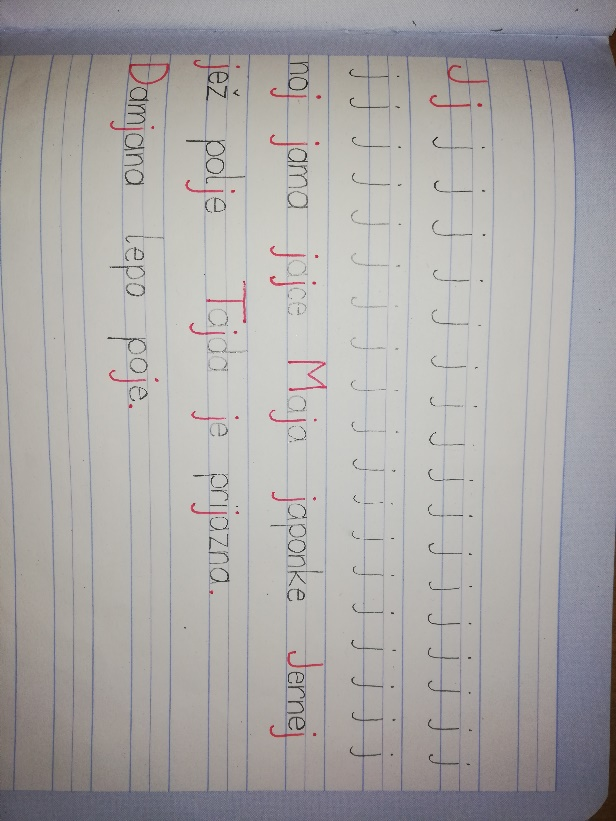 J j j j j j j j j j j j j j j j j j j
j j j j j j j j j j j j j j j j j j j
noj jama jajce Maja japonke Jernej
jež polje Tajda je prijazna.
Damjana lepo poje.